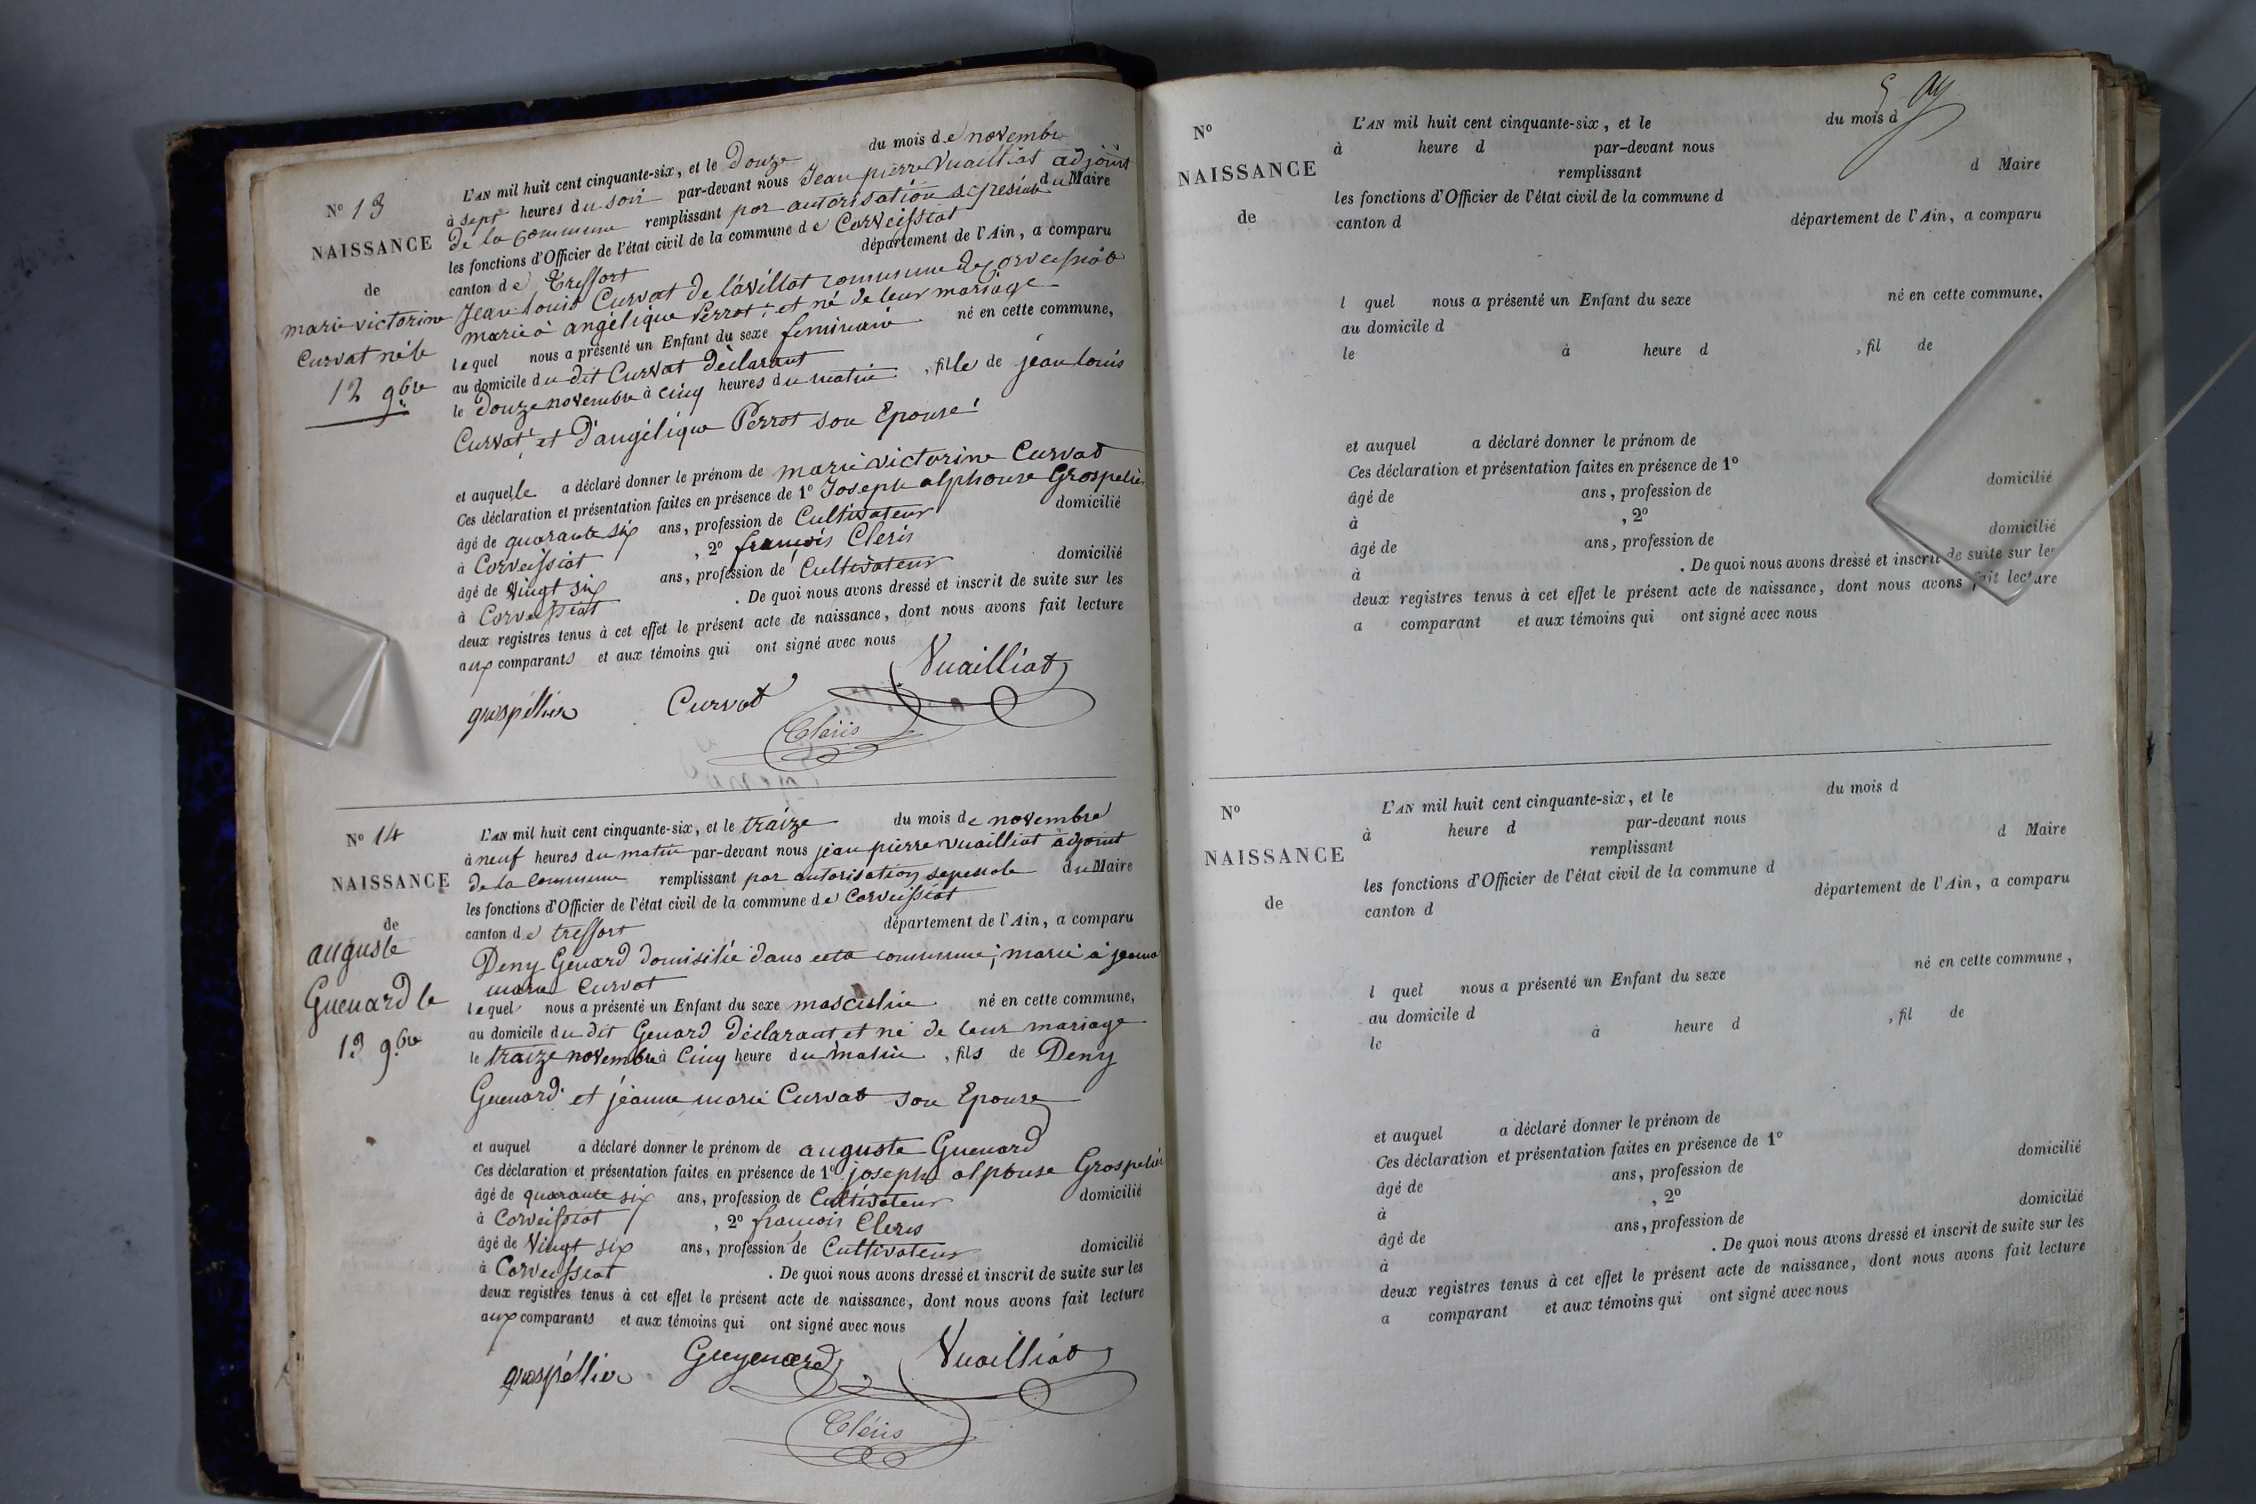 N° 13
NAISSANCE
de
marie victorine
Curvat né le
12 9bre
L'AN mil huit cent cinquante-six, et le Douze du mois de novembre
à sept heures du soir par-devant nous Jean pierre Vuailliat adjoint
de la Commune remplissant par autorisation du Maire
les fonctions d'Officier de l'état civil de la commune de Corveissiat
canton de Treffort département de l'Ain, a comparu
Jean Louis Curvat de Lavillat commune de Corveissiat
marié à angélique Perrot et né de leur mariage
lequel nous a présenté un Enfant du sexe feminain né en cette commune,
au domicile du dit Curvat déclarant
le Douze novembre à Cinq heures du matin, fille de jéan louis
Curvat et D'angélique Perrot son Epouse
et auquelle a déclaré donner le prénom de marie victorine Curvat
Ces déclaration et présentation faites en présence de 1° Joseph alphonse Grospelier
âgé de quarante six ans, profession de Cultivateur domicilié
à Corveissiat, 2° françois Cleris
âgé de Vingt six ans, profession de Cultivateur domicilié
à Corveissiat. De quoi nous avons dressé et inscrit de suite sur les
deux registres tenus à cet effet le présent acte de naissance, dont nous avons fait lecture
aux comparants et aux témoins qui ont signé avec nous
grospéllier Curvat Vuailliat
Cléris
N° 14
NAISSANCE
de
auguste
Guenard le
13 9bre
L'AN mil huit cent cinquante-six, et le traize du mois de novembre
à neuf heures du matin par-devant nous jean pierre vuailliat adjoint
de la Commune remplissant par autorisation du Maire
les fonctions d'Officier de l'état civil de la commune de Corveissiat
canton de treffort département de l'Ain, a comparu
Deny Genard domisilié dans cette commune, marié à jeanne
marie Curvat
lequel nous a présenté un Enfant du sexe masculin né en cette commune,
au domicile du dit Genard Déclarant et né de leur mariage
le traize novembre à Cinq heure du matin, fils de Deny
Guenard et jéanne marie Curvat son Epouse
et auquel a déclaré donner le prénom de auguste Guenard
Ces déclaration et présentation faites en présence de 1° joseph alphonse Grospelier
âgé de quarante six ans, profession de Cultivateur domicilié
à Corveissiat, 2° françois Cleris
âgé de Vingt six ans, profession de Cultivateur domicilié
à Corveissiat. De quoi nous avons dressé et inscrit de suite sur les
deux registres tenus à cet effet le présent acte de naissance, dont nous avons fait lecture
aux comparants et aux témoins qui ont signé avec nous
grospéllier Guyenard Vuailliat
Cléris
N°
NAISSANCE
de
L'AN mil huit cent cinquante-six, et le du mois d
à heure d par-devant nous
remplissant d Maire
les fonctions d'Officier de l'état civil de la commune d
canton d département de l'Ain, a comparu
l quel nous a présenté un Enfant du sexe né en cette commune,
au domicile d
le à heure d , fil de
et auquel a déclaré donner le prénom de
Ces déclaration et présentation faites en présence de 1°
âgé de ans, profession de domicilié
à , 2°
âgé de ans, profession de domicilié
à . De quoi nous avons dressé et inscrit de suite sur les
deux registres tenus à cet effet le présent acte de naissance, dont nous avons fait lecture
a comparant et aux témoins qui ont signé avec nous
N°
NAISSANCE
de
L'AN mil huit cent cinquante-six, et le du mois d
à heure d par-devant nous
remplissant d Maire
les fonctions d'Officier de l'état civil de la commune d
canton d département de l'Ain, a comparu
l quel nous a présenté un Enfant du sexe né en cette commune,
au domicile d
le à heure d , fil de
et auquel a déclaré donner le prénom de
Ces déclaration et présentation faites en présence de 1°
âgé de ans, profession de domicilié
à , 2°
âgé de ans, profession de domicilié
à . De quoi nous avons dressé et inscrit de suite sur les
deux registres tenus à cet effet le présent acte de naissance, dont nous avons fait lecture
a comparant et aux témoins qui ont signé avec nous